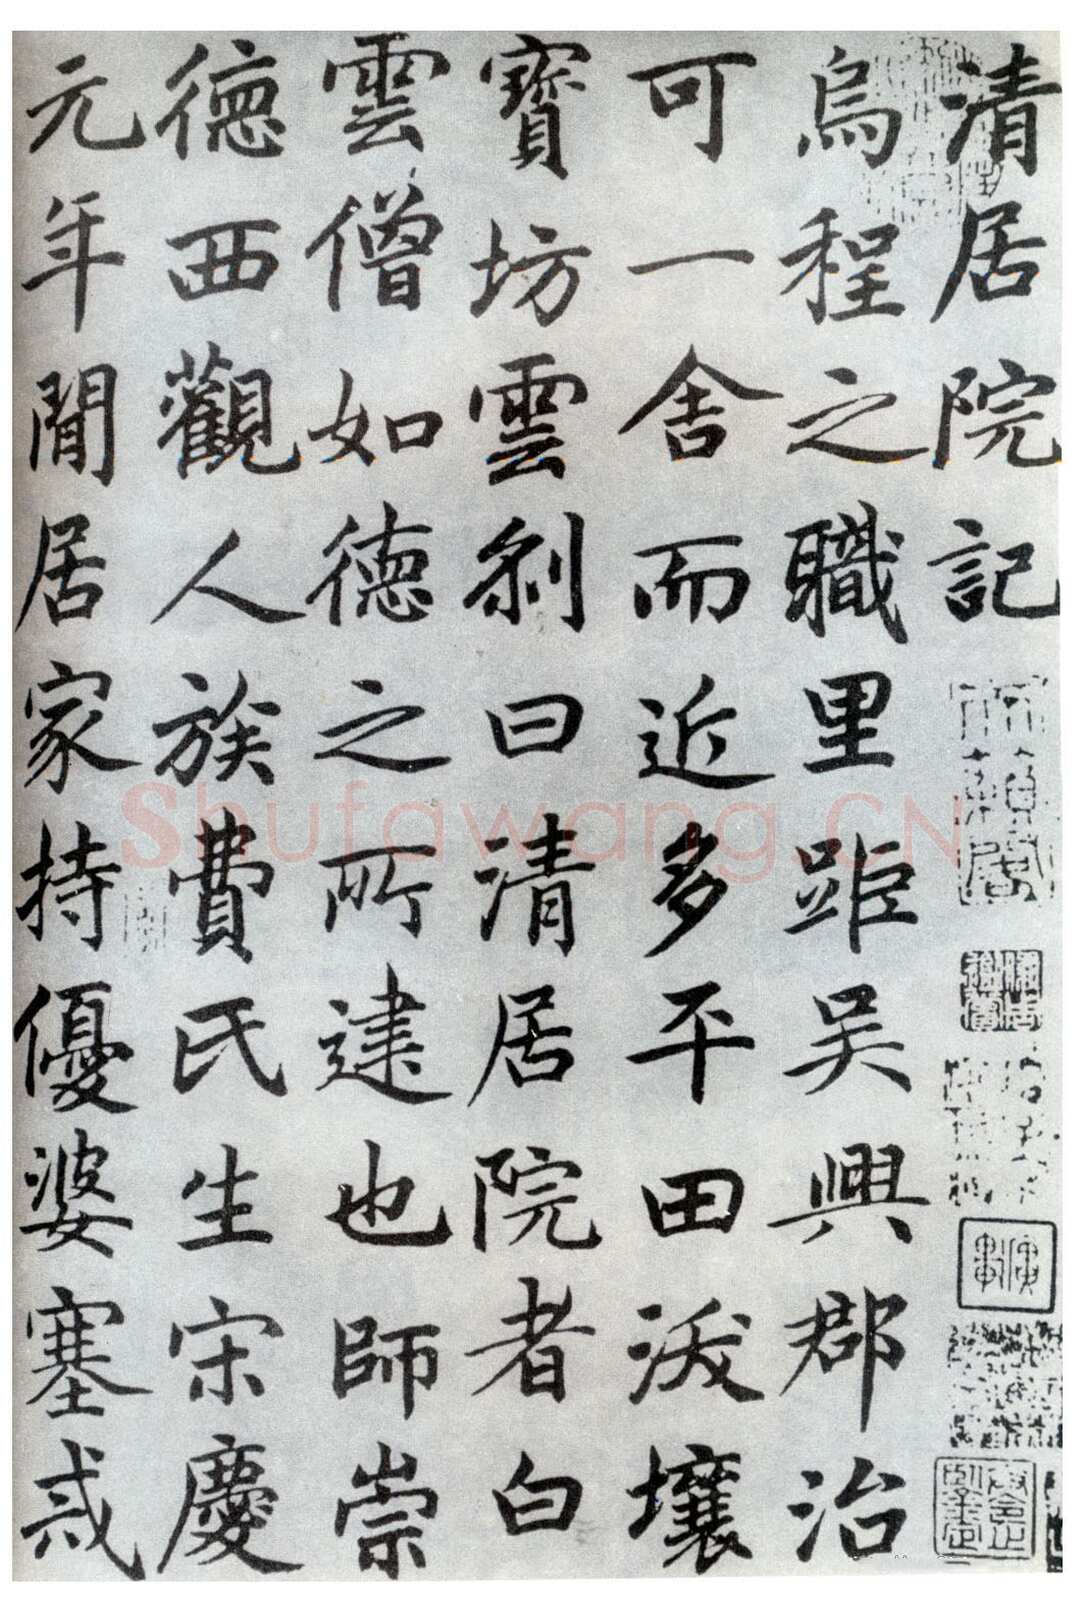 清居院記
烏程之職里距吳興郡治
可一舍而近多平田沃壤
寶坊雲剎曰清居院者白
雲僧如德之所建也師崇
德西觀人族費氏生宋慶
元年間居家持優婆塞戒
Shufawang.CN